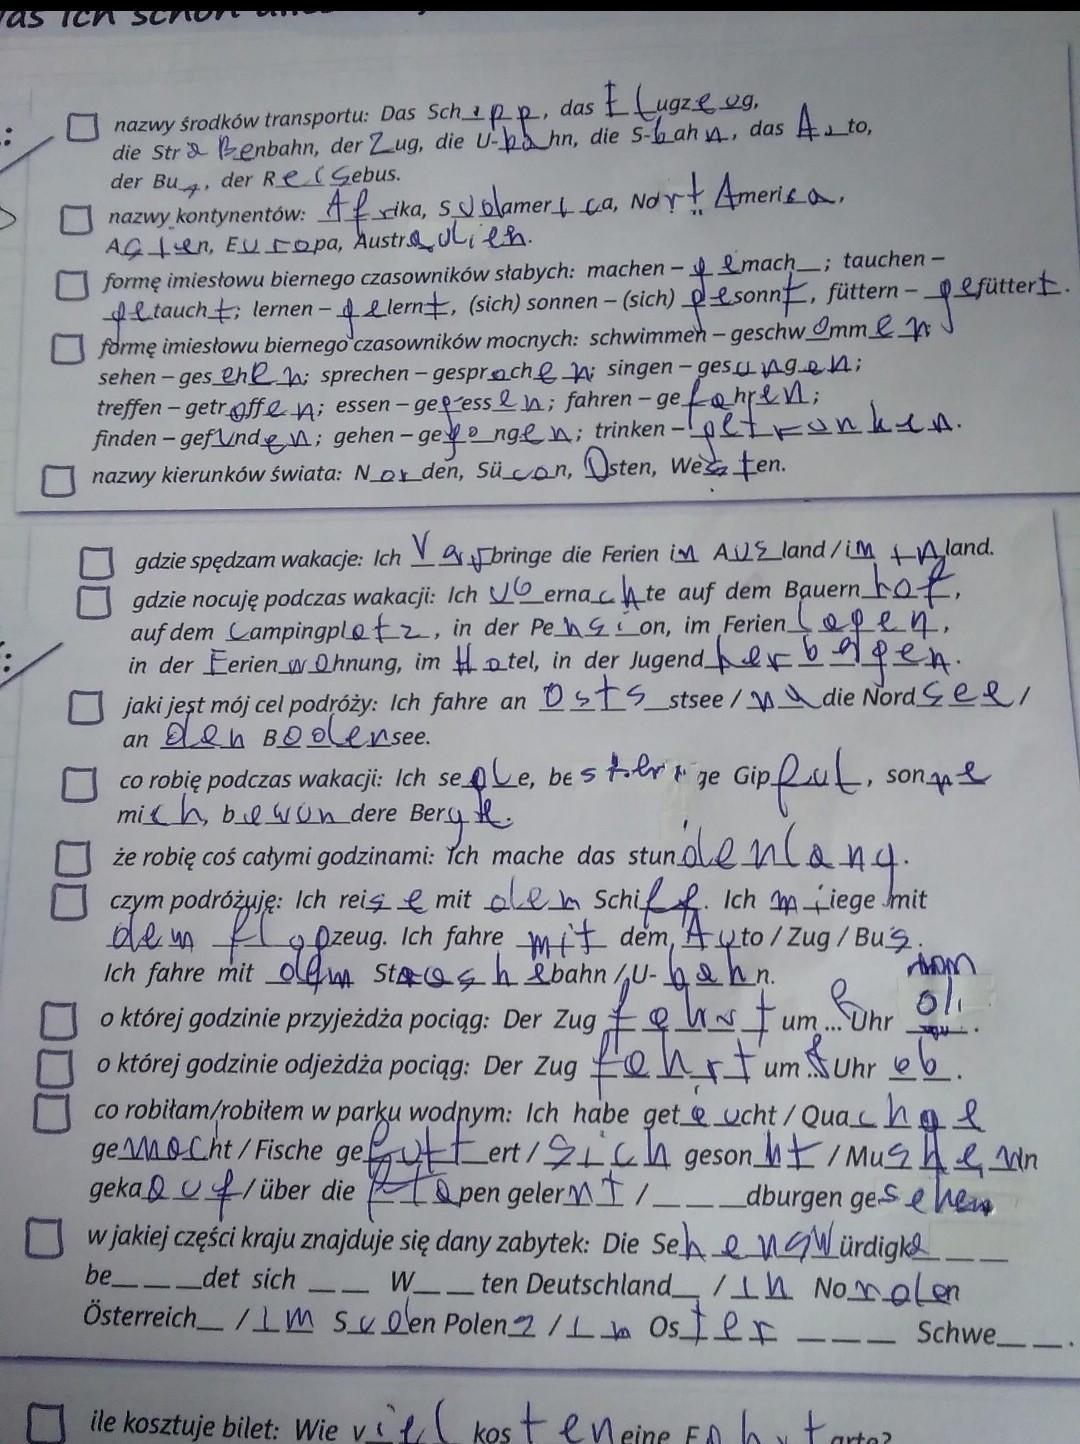 nazwy środków transportu: Das Sch_ipp, das Flugzeug,
die Straßenbahn, der Zug, die U-bahn, die S-bahn, das Auto,
der Bus, der Reisebus.
nazwy kontynentów: Afrika, Sudamerica, Nort America,
Europa,
formę imiesłowu biernego czasowników słabych: machen – gemach_; tauchen –
getaucht; lernen – gelernt, (sich) sonnen – (sich) gesonnt, füttern – gefüttert.
formę imiesłowu biernego czasowników mocnych: schwimmen – geschwommen
sehen – gesehen; sprechen – gesprochen; singen – gesungen;
treffen – getroffen; essen – gegessen; fahren – gefahren;
finden – gefunden; gehen – trinken – getrunken.
nazwy kierunków świata: Norden, Osten, Westen.
gdzie spędzam wakacje: Ich bringe die Ferien in Ausland / im Inland.
gdzie nocuję podczas wakacji: Ich auf dem Bauernhof,
auf dem Campingplatz, in der Pension, im Ferienlagen,
in der Ferienwohnung, im Hotel, in der Jugendherbagen.
jaki jest mój cel podróży: Ich fahre an Osts_stsee / na die Nordsee /
an den Bodensee.
co robię podczas wakacji: Ich Gipful, sonne
mich, bewundere Berge.
że robię coś całymi godzinami: Ich mache das stundenlang.
czym podróżuję: Ich reise mit dem Schiff. Ich miiege mit
dem Flugzeug. Ich fahre mit dem, Auto / Zug / Bus.
Ich fahre mit dem / U-bahn.
o której godzinie przyjeżdża pociąg: Der Zug um... Uhr
o której godzinie odjeżdża pociąg: Der Zug fahrt um Uhr ab.
co robiłam/robiłem w parku wodnym: Ich habe getaucht / Quachge
gemacht / Fische / Sich gesonnt /
/ über die gelernt / _ _ _dburgen gesehen
w jakiej części kraju znajduje się dany zabytek: Die Sehenswürdigke_ _ _
be_ _ _det sich _ _ W_ _ten Deutschland_ / In Norden
Österreich_ / Im Suden Polen / Im Oster _ _ _ Schwe_ _.
ile kosztuje bilet: Wie viel kosten eine